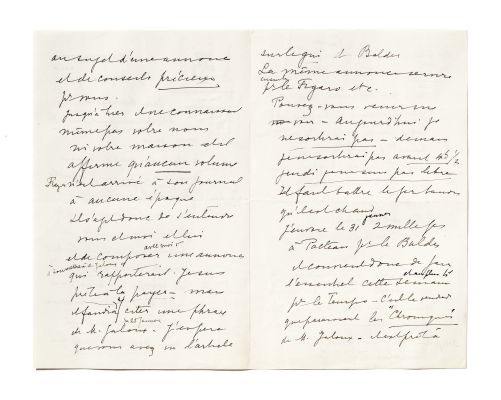 au sujet d'une annonce
et de conseils précieux
pr vous.
Jusqu'à hier il ne connaissait
même pas votre nom
ni votre maison et il
affirme qu'aucun volume
n'est arrivé à son journal
à aucune époque
Il s'agit donc de s'entendre
vous et moi et lui
avec moi
et de composer une annonce
qui rapporterait. Je suis
prête à la payer - mais
il faudra y citer une phrase
de M. Jaloux - J'espère
que vous avez eu l'article
sur le qui Baldes
La même annonce servira
pr le Figaro etc.
Pouvez-vous venir me
voir - Aujourd'hui je
ne sortirai pas - demain
je ne sortirai pas avant 4h 1/2
jeudi je ne suis pas libre
Il faut battre le fer
qu'il est chaud
janvier
J'envoie le 31 2 mille frs
à pr le Baldes
Il convient donc de faire
l'essentiel cette semaine
pr le Temps - C'est le vendredi
que paraissent les "Chroniques"
de M. Jaloux -